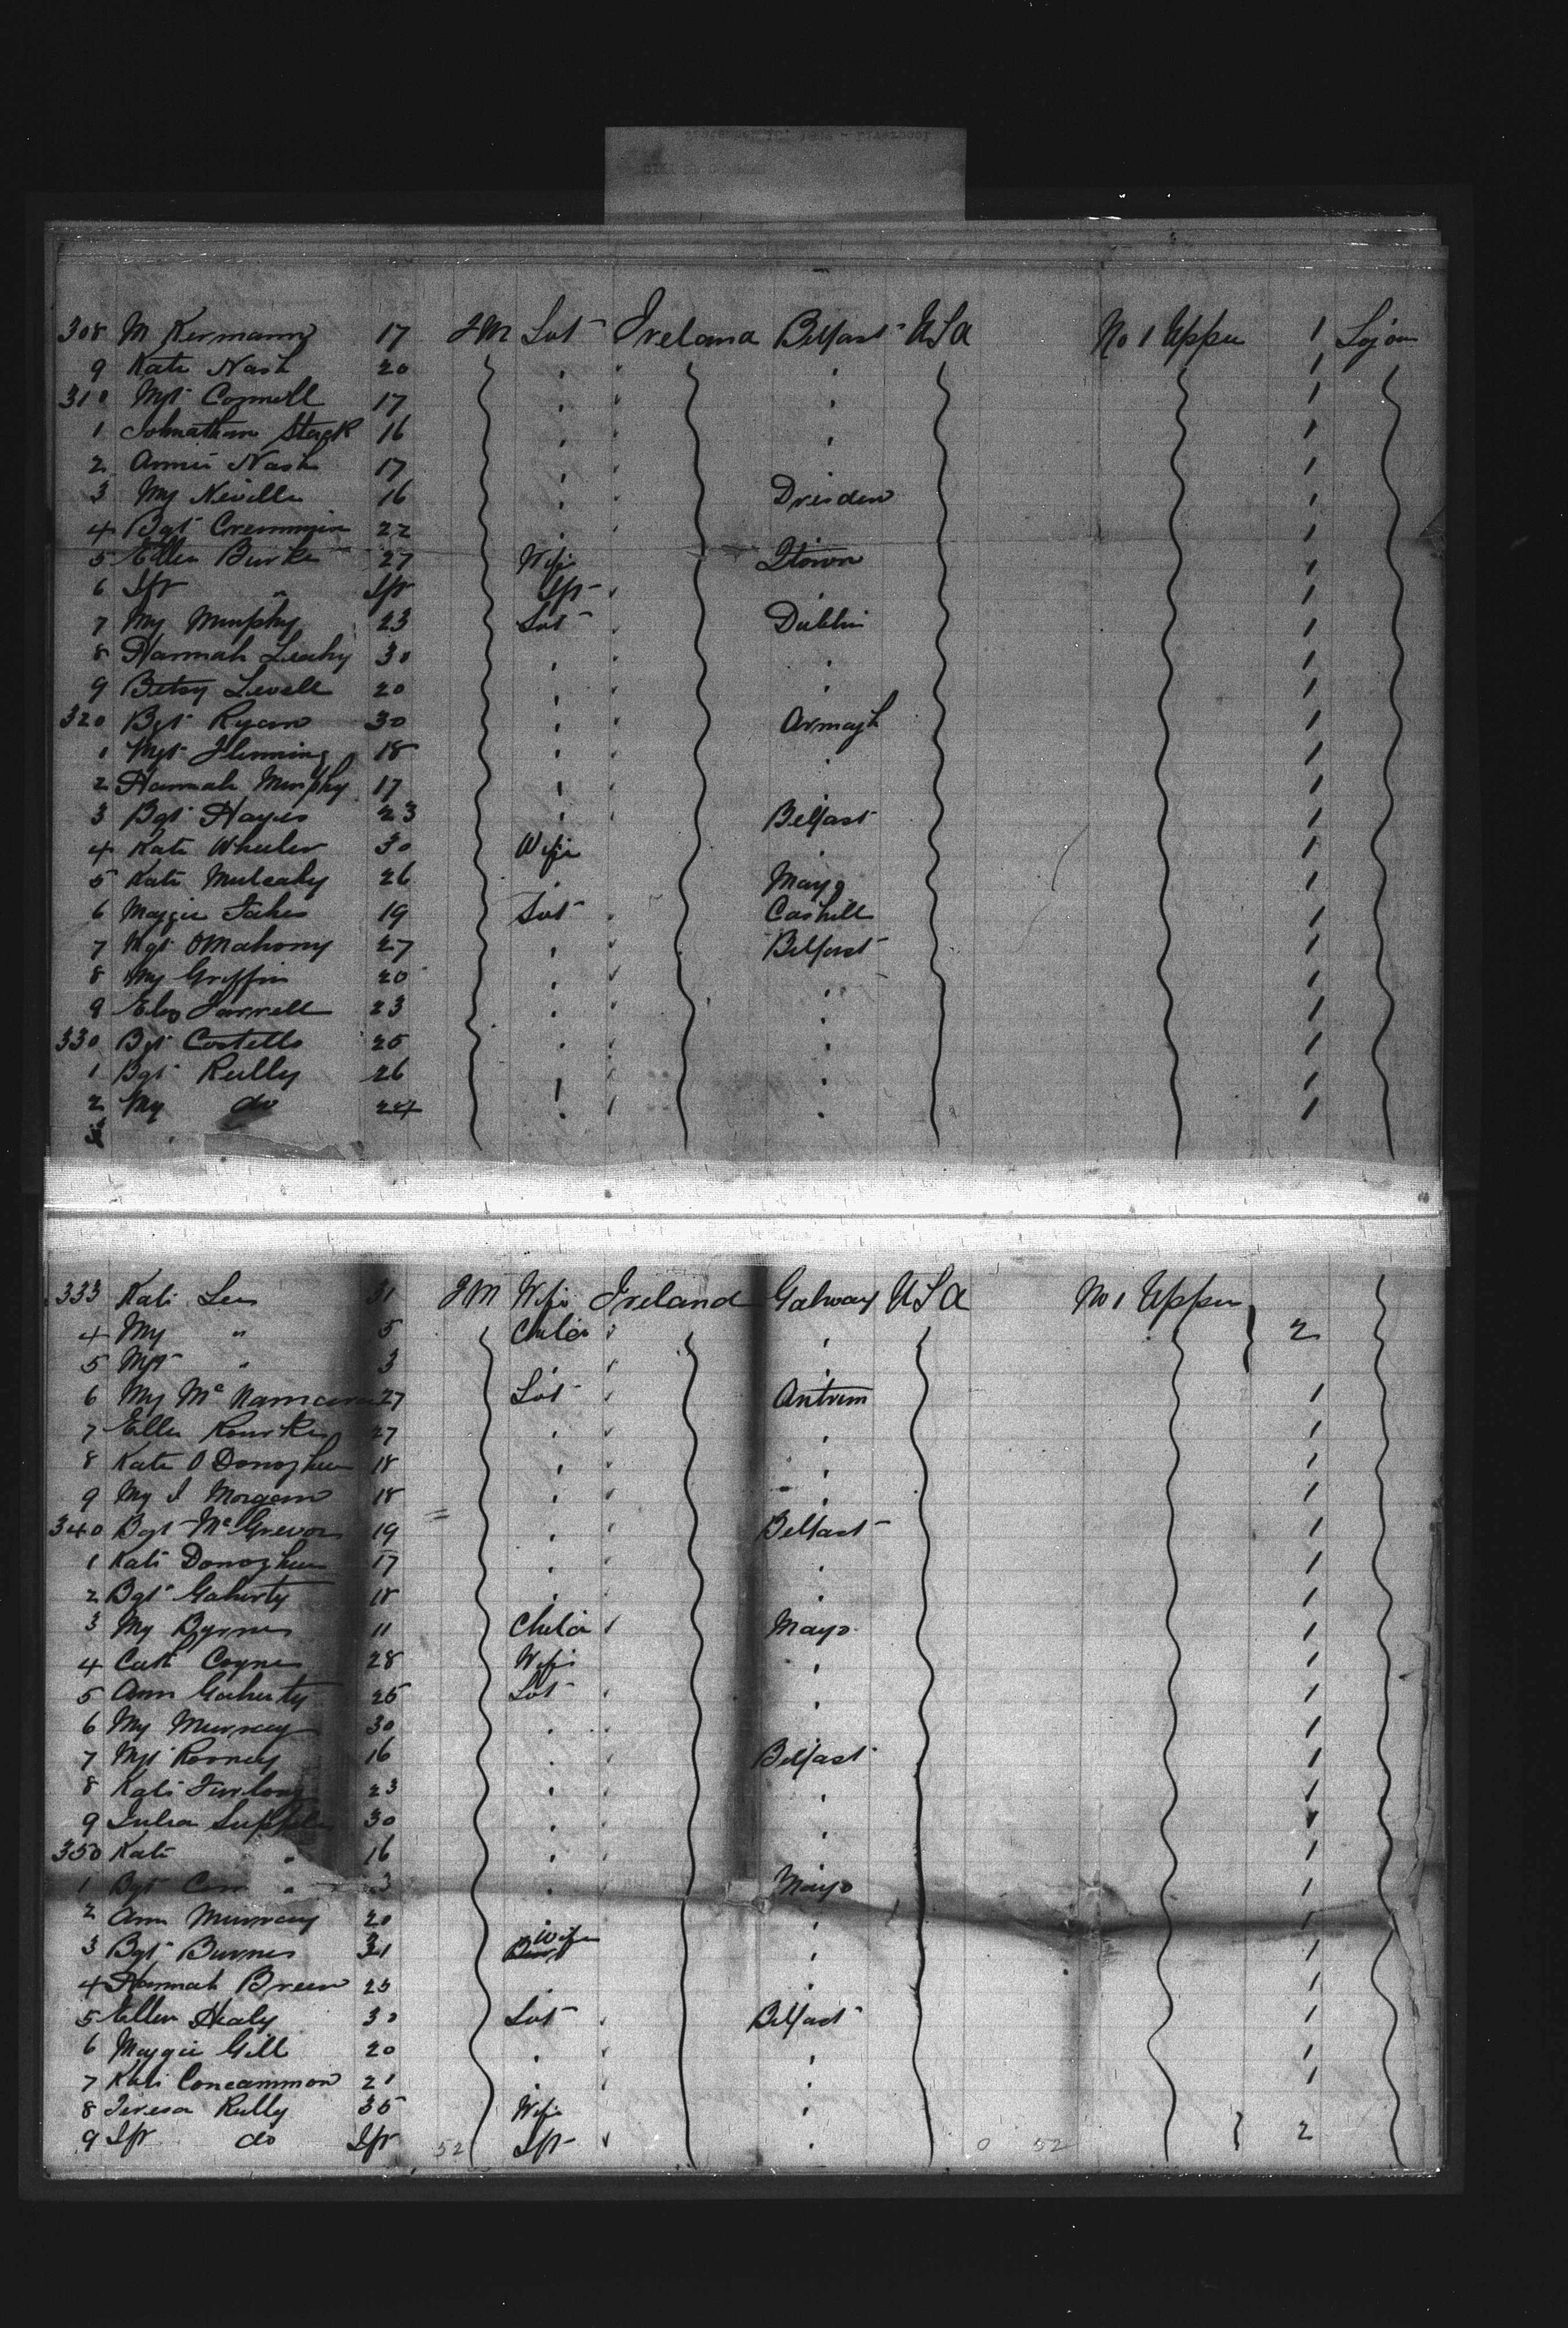 308 M Kermann 17 FM Svt Ireland Belfast USA No 1 Upper 1 Sojou
9 Kate Nash 20 " " " 1
310 Mgt Connell 17 " " " 1
1 Johnathan Stack 16 " " " 1
2 Annie Nash 17 " " 1
3 My Neville 16 " " Dresden 1
4 Bgt Cremmin 22 " " 1
5 Ellen Burke 27 Wife Qtown 1
6 Ifr " Ifr Ift " 1
7 My Murphy 23 Svt " Dublin 1
8 Hannah Leahy 30 " " " 1
9 Betsy Levell 20 " " " 1
320 Bgt Ryan 30 " " Armagh 1
1 Mgt Flemming 18 " " " 1
2 Hannah Murphy 17 " " 1
3 Bgt Hayes 23 " " Belfast 1
4 Kate Wheeler 30 Wife " 1
5 Kate Mulcahy 26 " Mayo 1
6 Maggie Fahes 19 Svt " Cashill 1
7 Mgt O Mahony 27 " " Belfast 1
8 My Griffin 20 " " " 1
9 Eliz Farrell 23 " " " 1
330 Bgt Costello 25 " " " 1
1 Bgt Kelly 26 " " " 1
2 My do 24 " " " 1
3
333 Kate Lee 31 FM Wife Ireland Galway USA No 1 Upper
4 My " 5 Child " " 2
5 Mgt " 3 " " "
6 My Mc Namara 27 Svt " Antrim 1
7 Ellen Rourke 27 " " " 1
8 Kate O Donoghue 18 " " " 1
9 My J Morgan 18 " " " 1
340 Bgt McGrevor 19 " " Belfast 1
1 Kate Donoghue 17 " " " 1
2 Bgt Gaherty 18 " " " 1
3 My Byrnes 11 Child " Mayo 1
4 Cath Coyne 28 Wife " 1
5 Ann Gaherty 25 Svt " " 1
6 My Murray 30 " " 1
7 Mgt Rooney 16 " " Belfast 1
8 Kate Furlong 23 " " " 1
9 Julia Supple 30 " " " 1
350 Kate " 16 " " 1
1 Bgt " 3 " Mayo 1
2 Ann Murray 20 " " 1
3 Bgt Burnes 31 Wife " 1
4 Hannah Breen 25 " " 1
5 Ellen Healy 30 Svt " Belfast 1
6 Maggie Gill 20 " " " 1
7 Kate Concannon 21 " " " 1
8 Teresa Kelly 35 Wife "
9 Ifr do Ifr 52 Ift " " 0 52 2